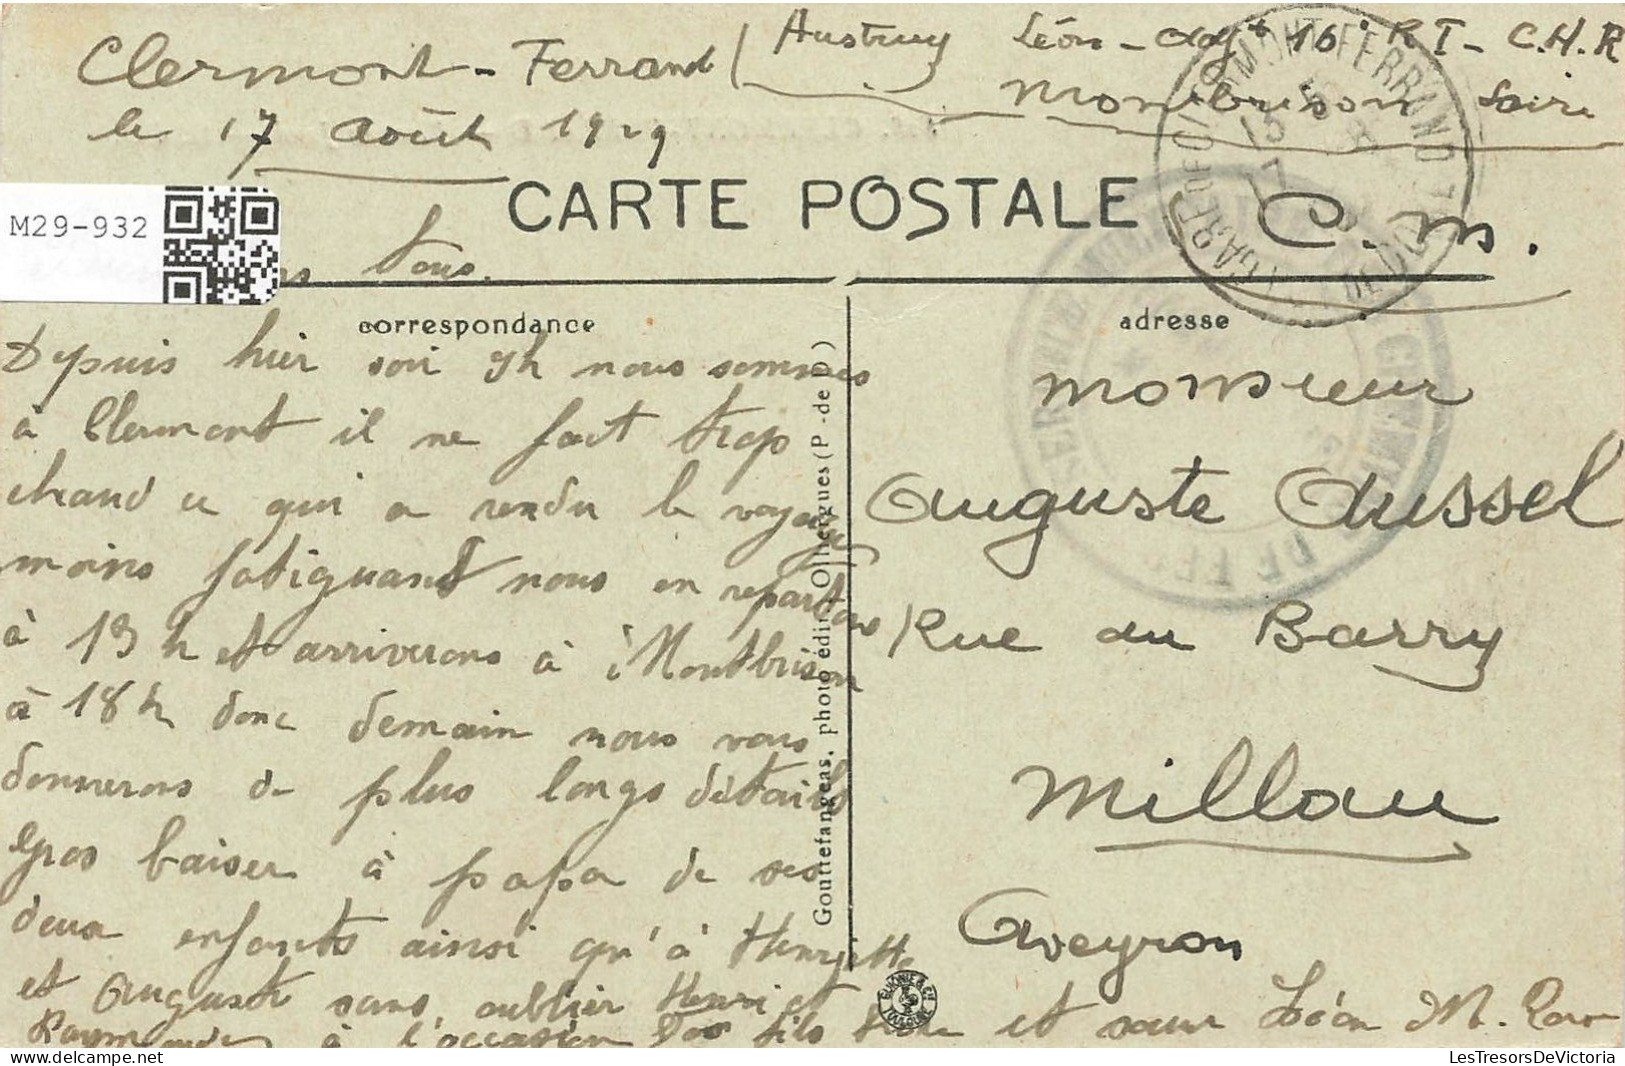 Clermont-Ferrand
le 17 Août 1929
Austruy Léón - 16e R I - C.H.R
Montbrison Loire
CARTE POSTALE
C. M.
M29-932
tous.
correspondance
adresse
Depuis hier soir 9h nous sommes
à Clermont il ne fait trop
chaud ce qui a rendu le voyage
moins fatiguant nous en repartons
à 13 h et arriverons à Montbrison
à 18 h donc demain nous vous
donnerons de plus longs détails
Gros baiser à papa de ses
deux enfants ainsi qu'à Henriette
et Auguste sans oublier Henri et
à l'occasion fils et sœur Léon M.
Monsieur
Auguste Aussel
Rue du Barry
Millau
Aveyron
Gouttefangeas, photo édit. Olliergues (P.-de D)
CLERMONT-FERRAND
PUY DE DOME
LesTresorsDeVictoria